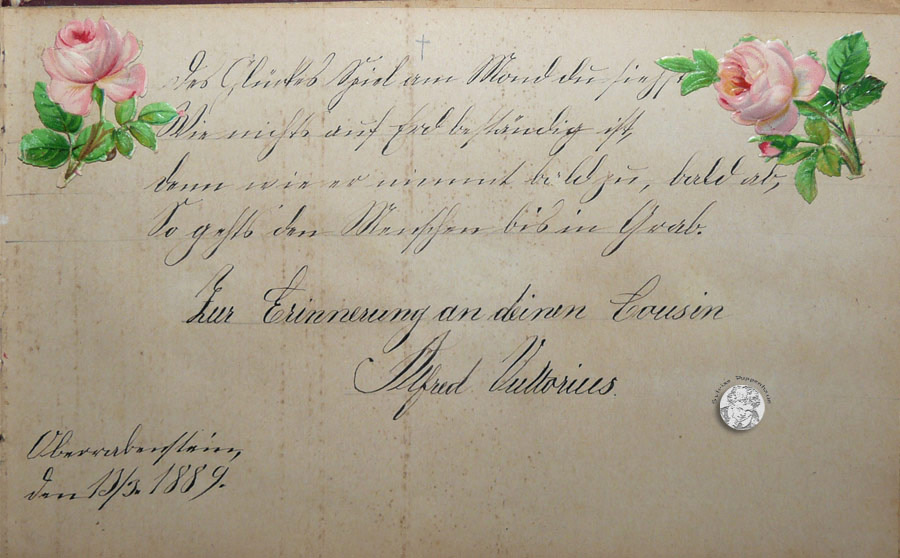 Des Glückes Spiel am Mond du siehst
Wie nichts auf Erd beständig ist
denn wie er nimmt bald zu, bald ab,
So gehts den Menschen bis in Grab.
Zur Erinnerung an deinen Cousin
Alfred
Oberrabenstein,
den 13/3. 1889.